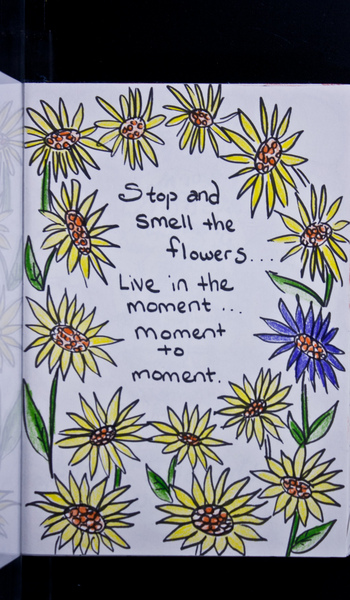 Stop and
smell the
flowers....
Live in the
moment...
moment
to
moment.